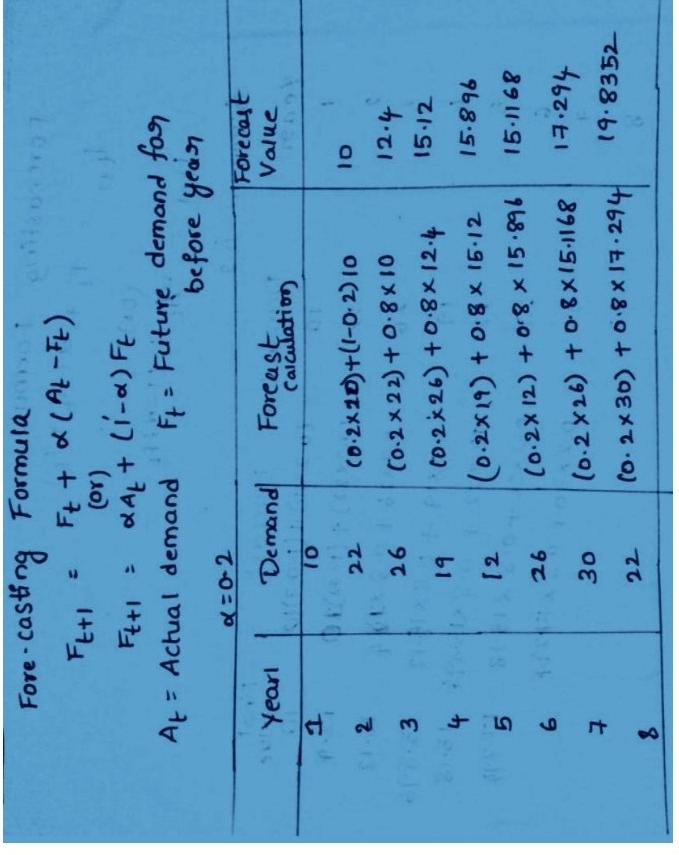 Fore-casting Formula
Ft+1 = Ft + α (At - Ft)
(or)
Ft+1 = αAt + (1-α) Ft
At = Actual demand Ft = Future demand for
before year
α=0.2
Year1 Demand Foreast Calculation Forecast Value
1 10
2 22 (0.2×10)+(1-0.2)10 10
3 26 (0.2×22) + 0.8×10 12.4
4 19 (0.2×26) + 0.8×12.4 15.12
5 12 (0.2×19) + 0.8×15.12 15.896
6 26 (0.2×12) + 0.8×15.896 15.1168
7 30 (0.2×26) + 0.8×15.1168 17.294
8 22 (0.2×30) + 0.8×17.294 19.8352